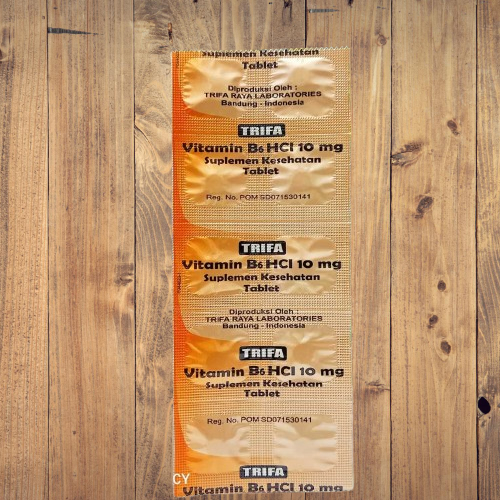 Suplemen Kesehatan
Tablet
Diproduksi Oleh :
TRIFA RAYA LABORATORIES
Bandung - Indonesia
TRIFA
Vitamin B6 HCl 10 mg
Suplemen Kesehatan
Tablet
Reg. No. POM SD071530141
TRIFA
Vitamin B6 HCl 10 mg
Suplemen Kesehatan
Tablet
Diproduksi Oleh :
TRIFA RAYA LABORATORIES
Bandung - Indonesia
TRIFA
Vitamin B6 HCl 10 mg
Suplemen Kesehatan
Tablet
Reg. No. POM SD071530141
CY
TRIFA
Vitamin B6 HCl 10 mg